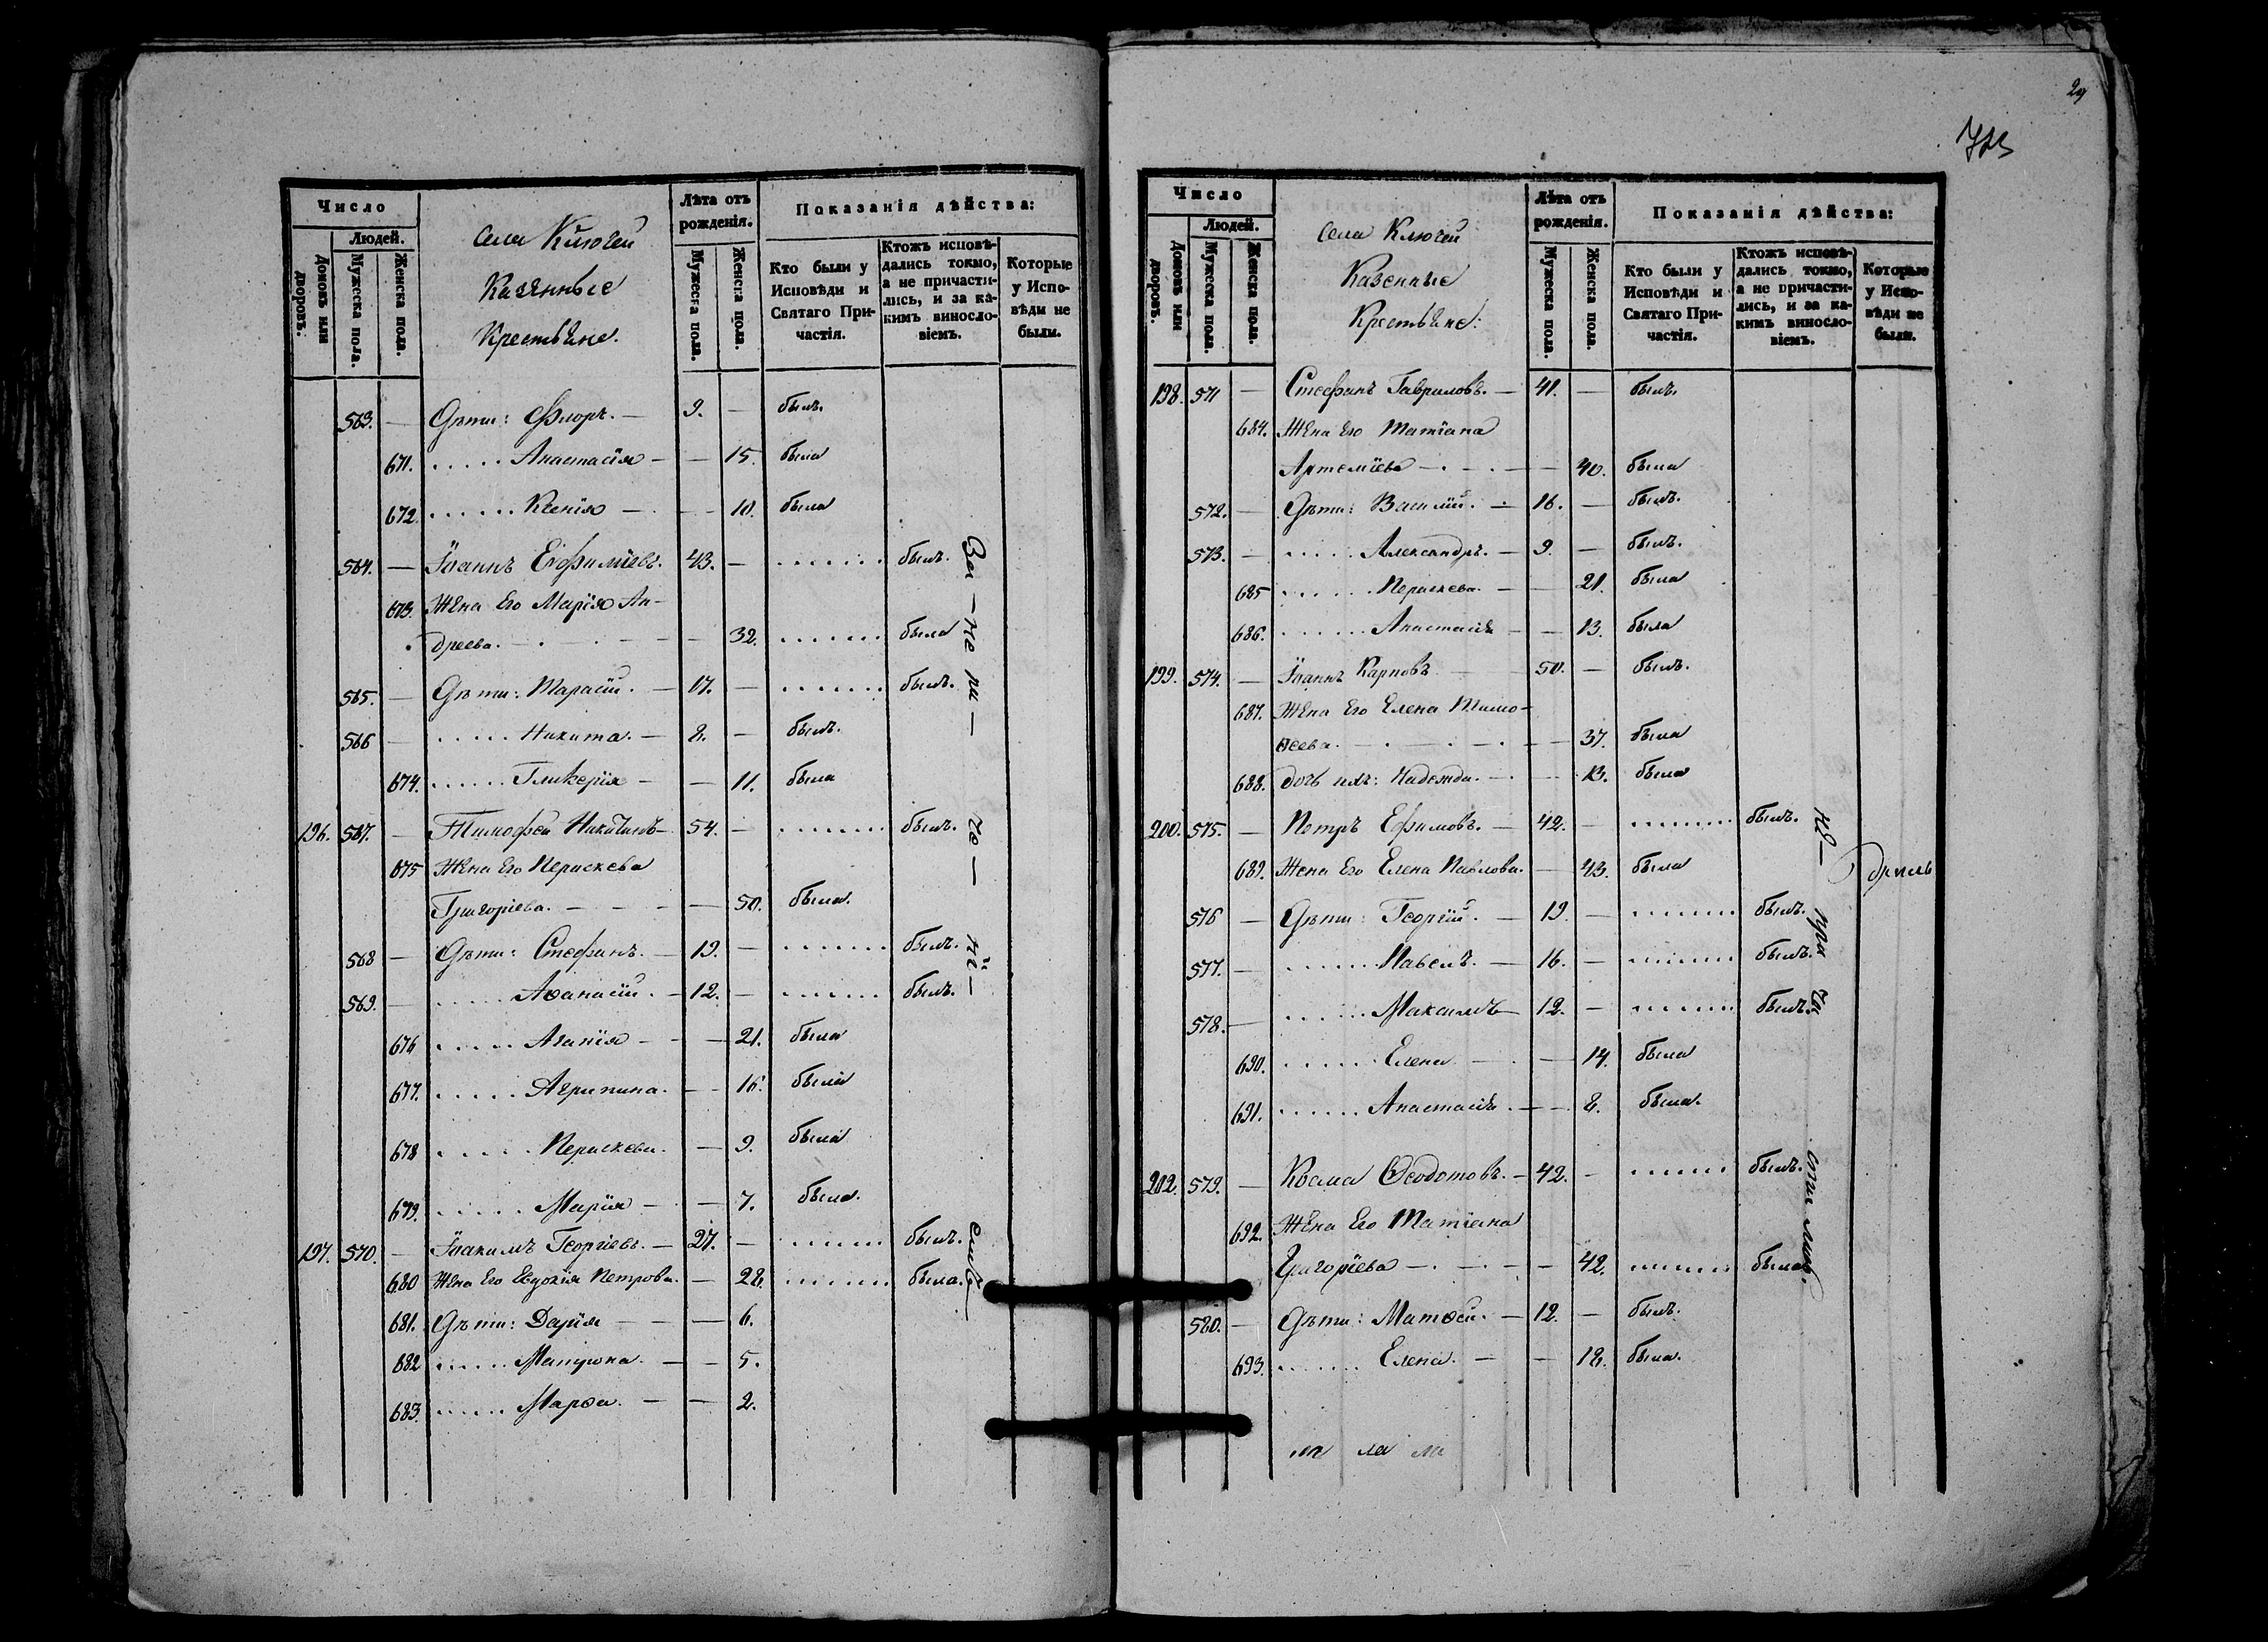 Число
Людей.
Домовъ или дворовъ.
Мужеска пола.
Женска пола.
Села Ключей
Казенные
Крестьяне.
Лѣта отъ рожденія.
Мужеска пола.
Женска пола.
Показанія дѣйства:
Кто были у Исповѣди и Святаго Причастія.
Ктожъ исповѣдались токмо, а не причастились, и за какимъ винословіемъ.
Которые у Исповѣди не были.
563. — Дѣти: Флоръ. — 9. — былъ.
671. ..... Анастасія — — 15. была
672. ...... Ксенія — — 10. была
564. — Іоаннъ Евфиміевъ. 43. — ....... былъ.
673. Жена Его Марія Ан-
дреева. — — 32. ....... была
565. — Дѣти: Тарасій. — 17. — ....... былъ.
566 — ..... Никита. — 8. — былъ.
674. ...... Гликерія — — 11. была
196. 567. — Тимофей Никитинъ — 54. — ........ былъ.
675 Жена Его Параскева
Григоріева. — — 50. была.
568 — Дѣти: Стефанъ. — 19. — ....... былъ.
569. — ..... Аѳанасій. — 12. — ....... былъ.
676 ..... Агапія — — 21. была
677. ..... Агрипина. — — 16. была
678 ..... Параскева. — 9. была
679. ..... Марія — — 7. была.
197. 570. — Іоакимъ Георгіевъ. — 27. — ...... былъ.
680 Жена Его Евдокія Петрова. — 28. ....... была.
681. Дѣти: Дарія — — 6.
682 ..... Матрона. — — 5.
683. ..... Марѳа. — — 2.
29
Число
Людей.
Домовъ или дворовъ.
Мужеска пола.
Женска пола.
Села Ключей
Казенные
Крестьяне:
Лѣта отъ рожденія.
Мужеска пола.
Женска пола.
Показанія дѣйства:
Кто были у Исповѣди и Святаго Причастія.
Ктожъ исповѣдались токмо, а не причастились, и за какимъ винословіемъ.
Которые у Исповѣди не были.
198. 571 — Стефанъ Гавриловъ. — 41. — былъ.
684. Жена Его Татіана
Артеміева — — 40. была
572. — Дѣти: Василій. — 16. — былъ.
573. — ..... Александръ. — 9. — былъ.
685 ...... Параскева. — — 21. была
686. ...... Анастасія — — 13. была
199. 574. — Іоаннъ Карповъ — 50. — былъ.
687. Жена Его Елена Тимо-
ѳеева. — — 37. была
688. дочь ихъ: Надежда. — — 13. была
200. 575. — Петръ Ефимовъ. — 42. — ....... былъ.
689. Жена Его Елена Павлова. — 43. была
576 — Дѣти: Георгій. — 19. — ....... былъ.
577. — ...... Павелъ. — 16. — ....... былъ.
578. — ...... Максимъ — 12. — ....... былъ.
690. ...... Елена — — 14. была
691. ...... Анастасія. — — 8. была.
202. 579. — Косма Ѳеодотовъ. — 42. — ...... былъ.
692. Жена Его Татіана
Григоріева — — 42. ....... была
580. — Дѣти: Матѳей. — 12. — былъ.
693. ...... Елена. — — 18. была.